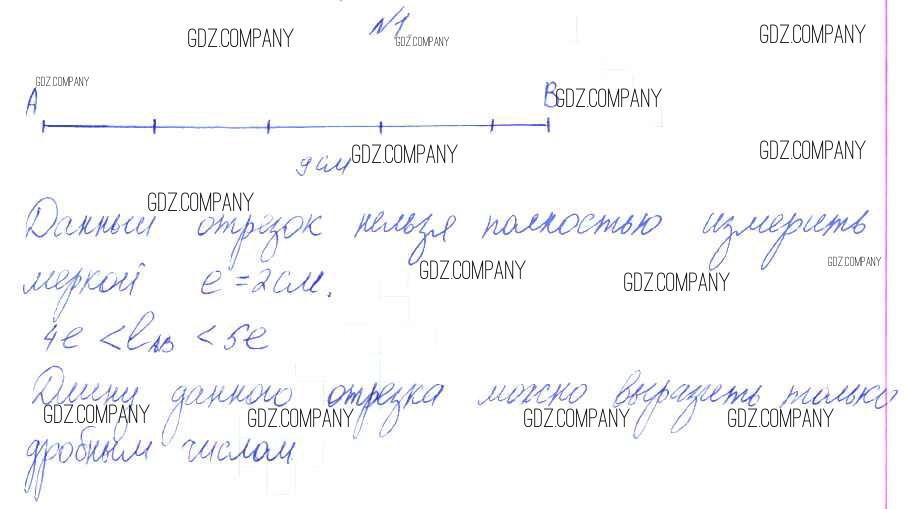 №1
GDZ.COMPANY
GDZ.COMPANY
GDZ.COMPANY
GDZ.COMPANY
A
B
GDZ.COMPANY
9 см
GDZ.COMPANY
GDZ.COMPANY
GDZ.COMPANY
Данный отрезок нельзя полностью измерить
меркой e = 2 см.
GDZ.COMPANY
GDZ.COMPANY
GDZ.COMPANY
4e < lAB < 5e
Длину данного отрезка можно выразить только
GDZ.COMPANY
GDZ.COMPANY
GDZ.COMPANY
GDZ.COMPANY
дробным числом